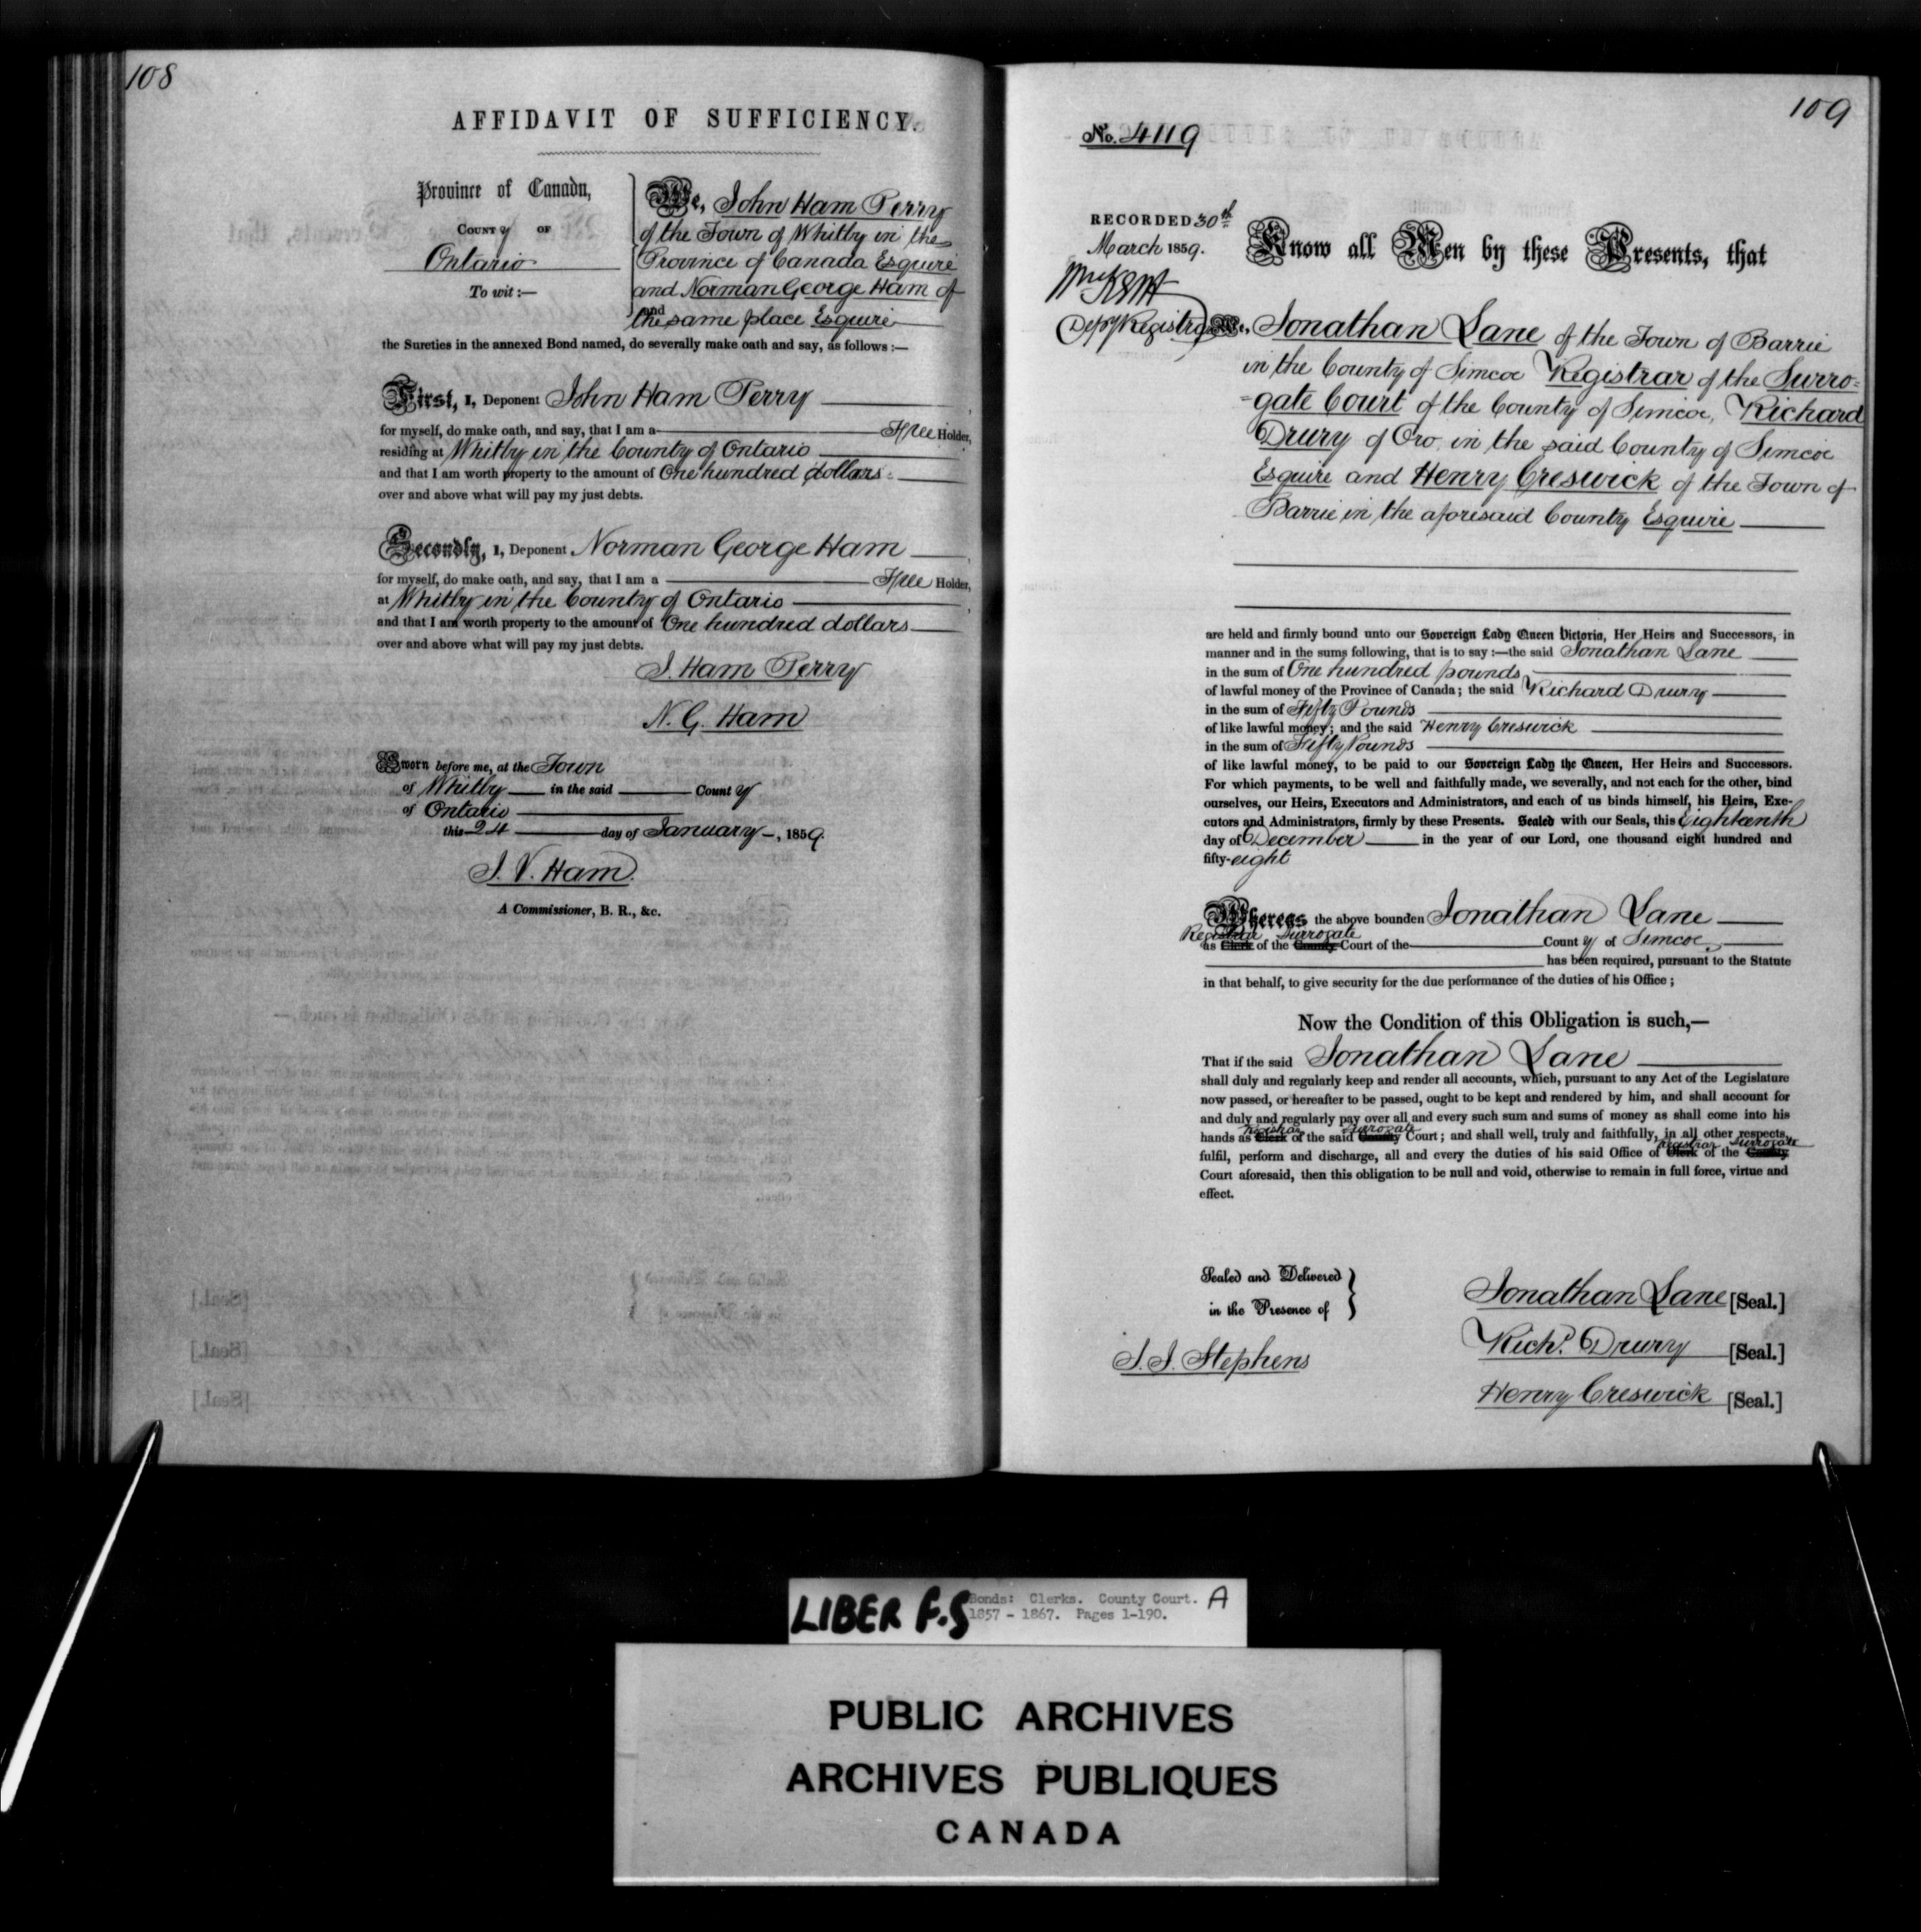 108
AFFIDAVIT OF SUFFICIENCY.
Province of Canada,
County of
Ontario
To wit:—
We, John Ham Perry
of the Town of Whitby in the
Province of Canada Esquire
and Norman George Ham of
the same place Esquire
and
the Sureties in the annexed Bond named, do severally make oath and say, as follows:—
First, I, Deponent John Ham Perry
for myself, do make oath, and say, that I am a Free Holder,
residing at Whitby in the County of Ontario
and that I am worth property to the amount of One hundred dollars
over and above what will pay my just debts.
Secondly, I, Deponent Norman George Ham
for myself, do make oath, and say, that I am a Free Holder,
at Whitby in the County of Ontario
and that I am worth property to the amount of One hundred dollars
over and above what will pay my just debts.
J. Ham Perry
N. G. Ham
Sworn before me, at the Town
of Whitby in the said County
of Ontario
this 24 day of January, 1859.
J. V. Ham
A Commissioner, B. R., &c.
109
No. 4119
RECORDED 30th
March 1859.
Depy Registrar
Know all Men by these Presents, that
We, Jonathan Lane of the Town of Barrie
in the County of Simcoe Registrar of the Surro=
=gate Court of the County of Simcoe, Richard
Drury of Oro in the said County of Simcoe
Esquire and Henry Creswick of the Town of
Barrie in the aforesaid County Esquire
are held and firmly bound unto our Sovereign Lady Queen Victoria, Her Heirs and Successors, in
manner and in the sums following, that is to say:—the said Jonathan Lane
in the sum of One hundred pounds
of lawful money of the Province of Canada; the said Richard Drury
in the sum of Fifty Pounds
of like lawful money; and the said Henry Creswick
in the sum of Fifty Pounds
of like lawful money, to be paid to our Sovereign Lady the Queen, Her Heirs and Successors.
For which payments, to be well and faithfully made, we severally, and not each for the other, bind
ourselves, our Heirs, Executors and Administrators, and each of us binds himself, his Heirs, Exe-
cutors and Administrators, firmly by these Presents. Sealed with our Seals, this Eighteenth
day of December in the year of our Lord, one thousand eight hundred and
fifty-eight
Whereas the above bounden Jonathan Lane
Registrar Surrogate
as Clerk of the County Court of the County of Simcoe
has been required, pursuant to the Statute
in that behalf, to give security for the due performance of the duties of his Office;
Now the Condition of this Obligation is such,—
That if the said Jonathan Lane
shall duly and regularly keep and render all accounts, which, pursuant to any Act of the Legislature
now passed, or hereafter to be passed, ought to be kept and rendered by him, and shall account for
and duly and regularly pay over all and every such sum and sums of money as shall come into his
Registrar Surrogate
hands as Clerk of the said County Court; and shall well, truly and faithfully, in all other respects,
Registrar Surrogate
fulfil, perform and discharge, all and every the duties of his said Office of Clerk of the County
Court aforesaid, then this obligation to be null and void, otherwise to remain in full force, virtue and
effect.
Sealed and Delivered
in the Presence of
J. J. Stephens
Jonathan Lane [Seal.]
Richd. Drury [Seal.]
Henry Creswick [Seal.]
LIBER F.S
Bonds: Clerks. County Court. A
1857 - 1867. Pages 1-190.
PUBLIC ARCHIVES
ARCHIVES PUBLIQUES
CANADA